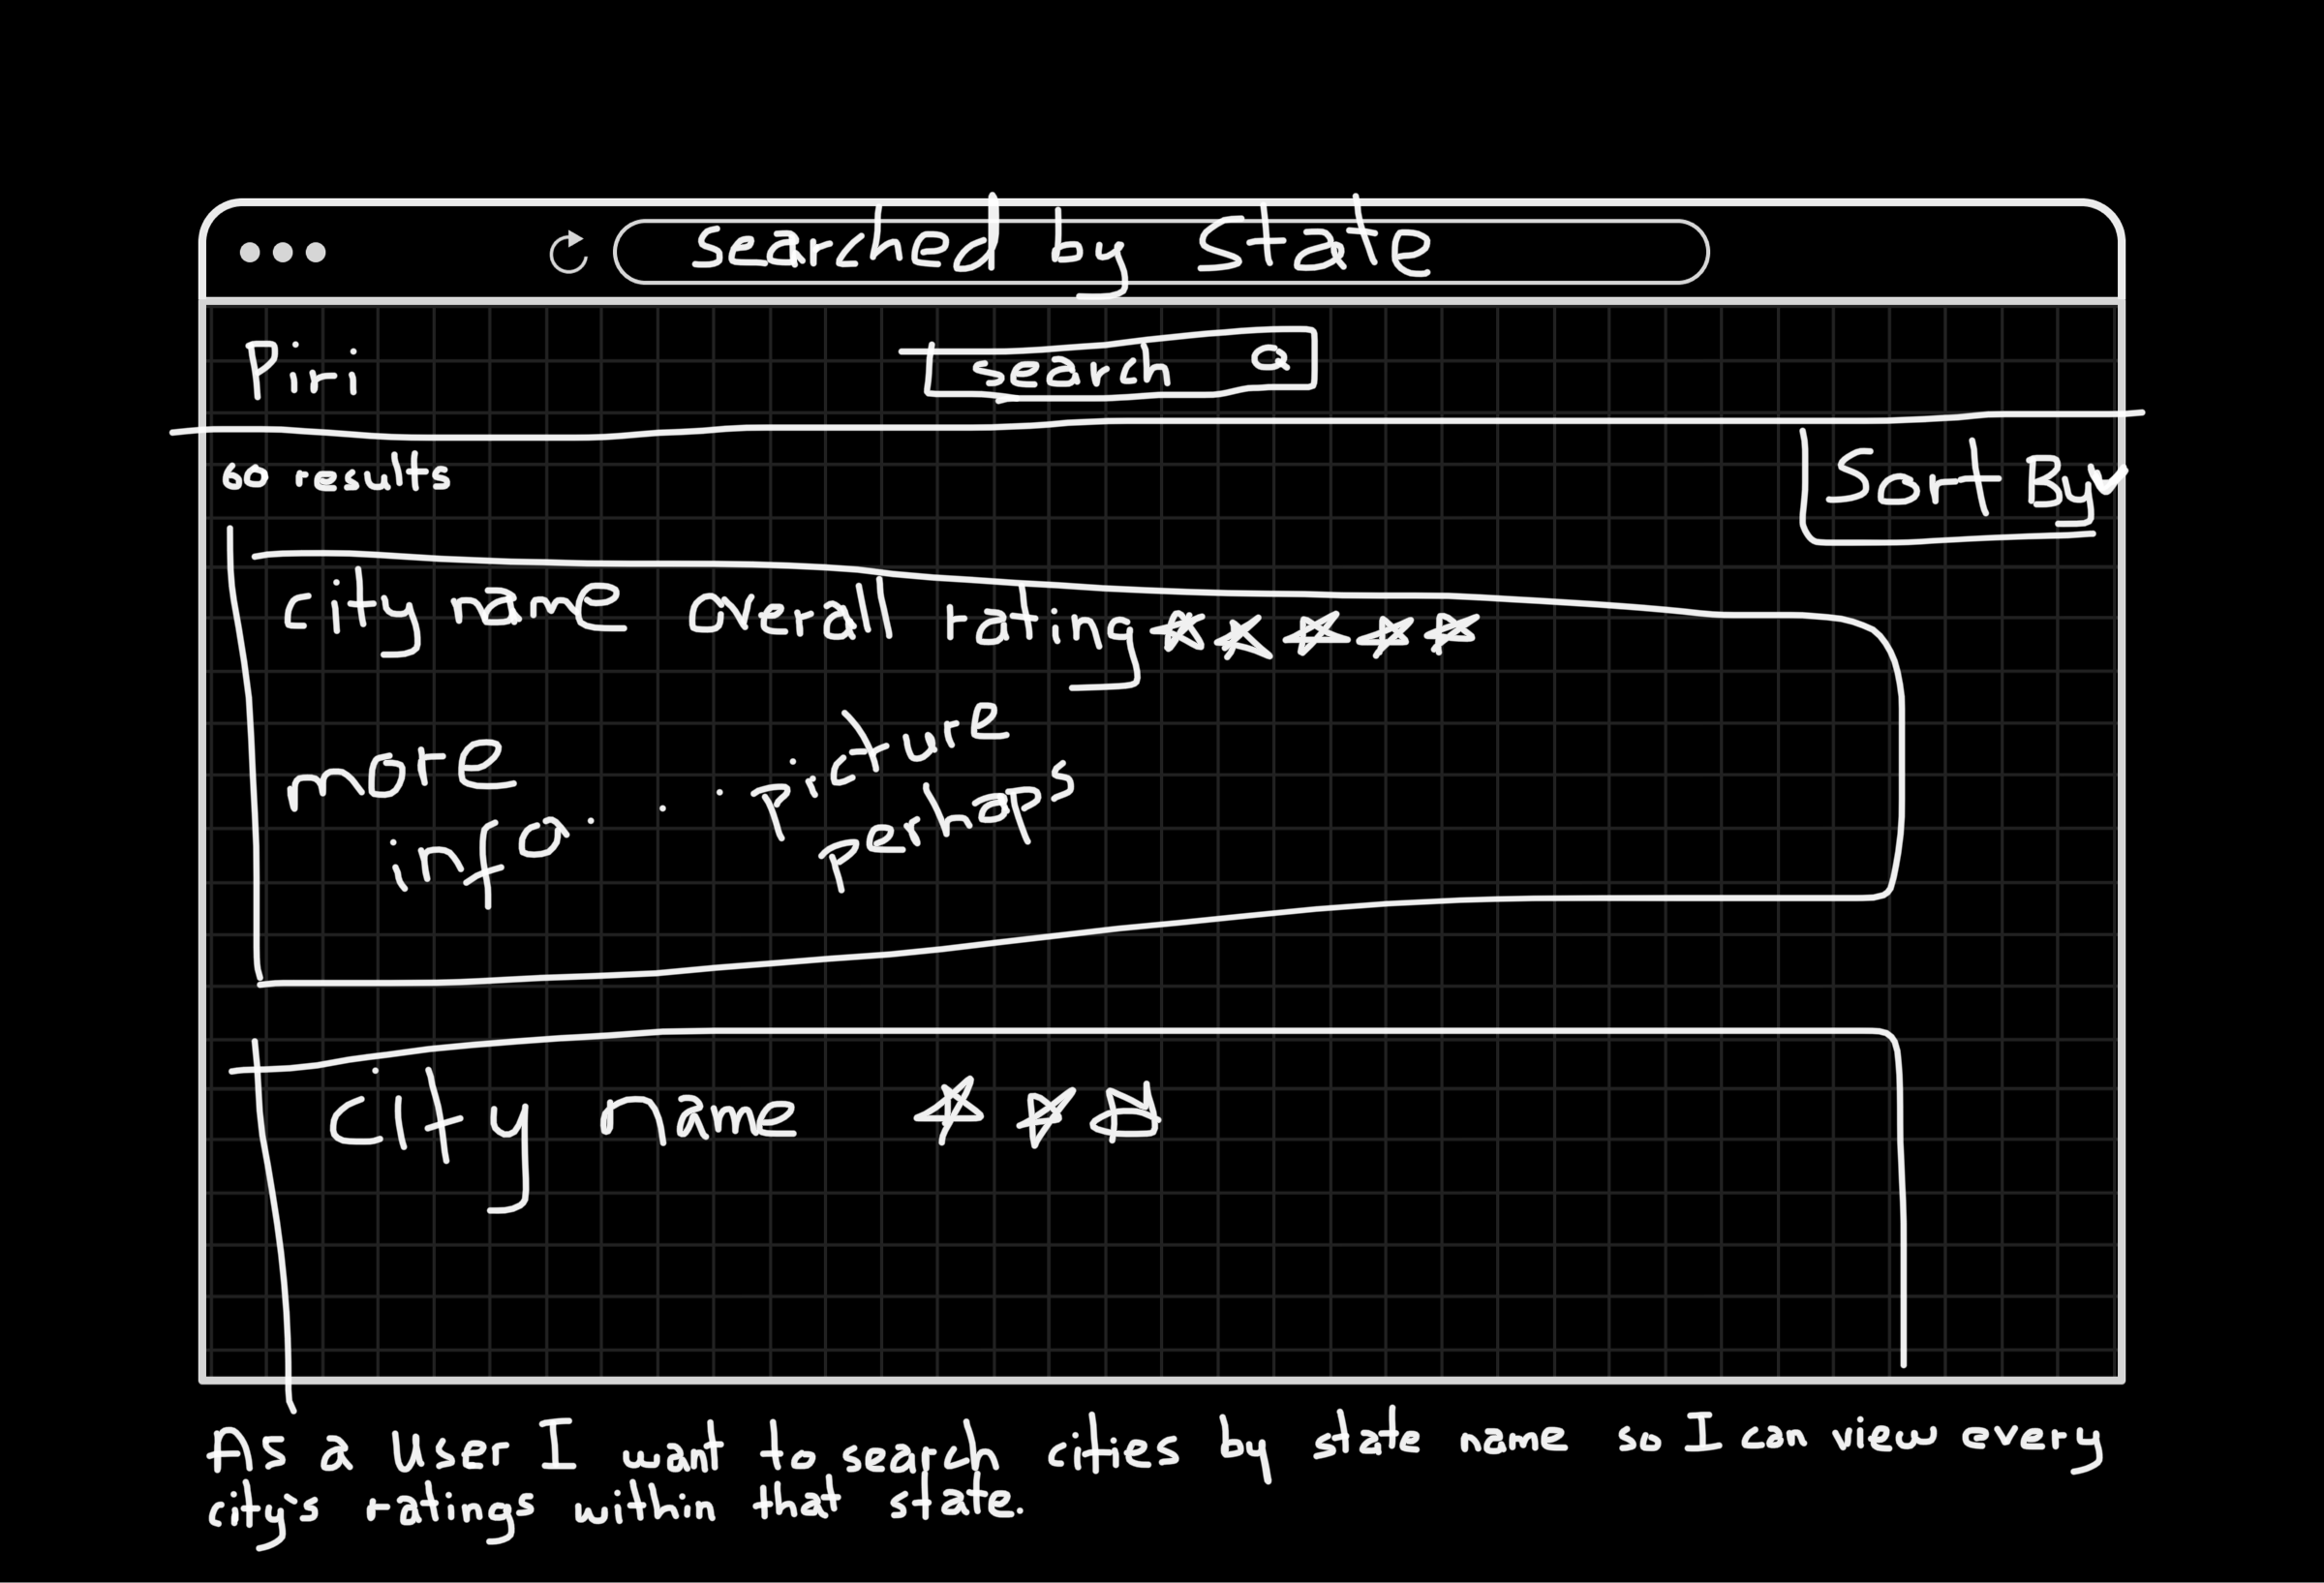 searched by State
Piri
search
60 results
Sort By
city name overall rating
more
info... picture
perhaps
City name
As a User I want to search cities by state name so I can view every
city's ratings within that state.